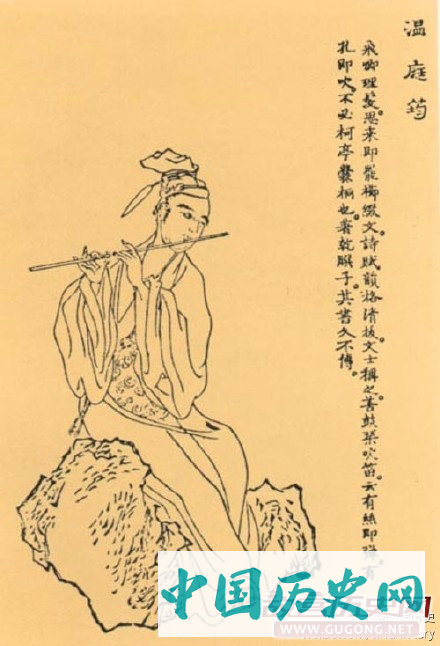 温庭筠
飛卿理髮。思来即罷櫛綴文。詩賦韻格清拔。文士稱之。善鼓琴吹笛。云有絲即彈。有
孔即吹。不必柯亭爨桐也。著乾𦠆子。其書久不傳。
中国历史网
WWW.GUGONG.NET